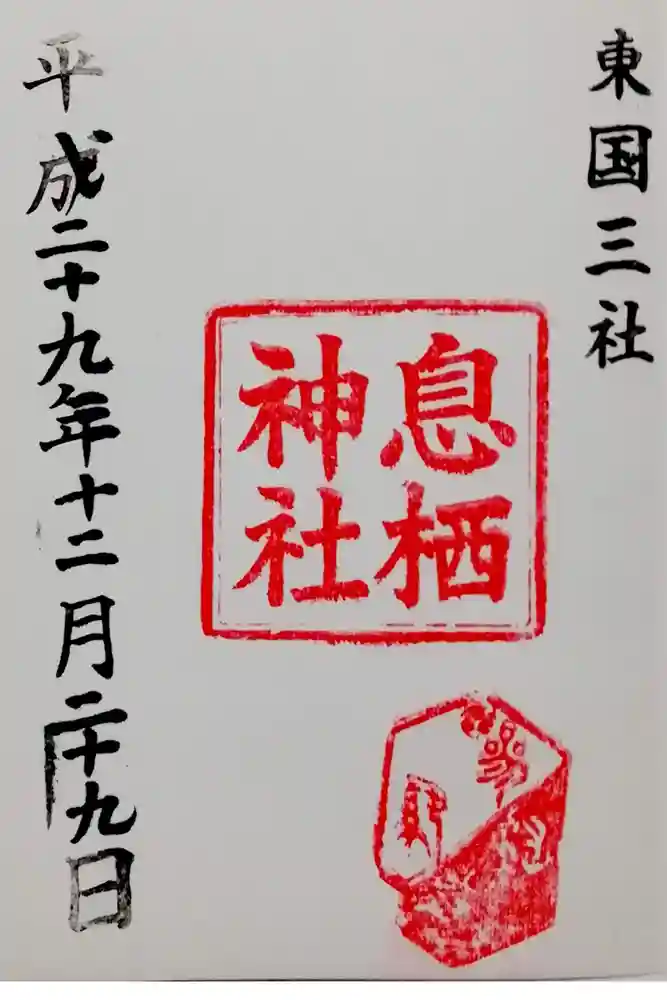 東国三社
息栖
神社
平成二十九年十二月二十九日